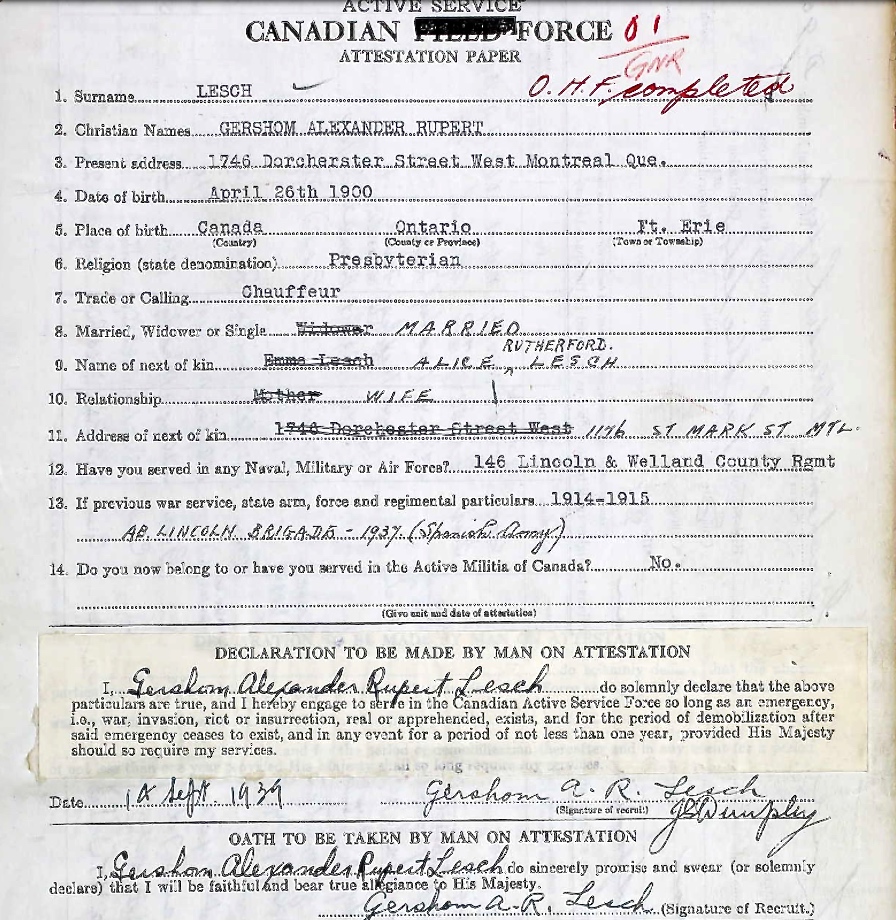 ACTIVE SERVICE
CANADIAN FIELD FORCE 01
ATTESTATION PAPER GNR
1. Surname LESCH O.H.F. completed
2. Christian Names GERSHOM ALEXANDER RUPERT
3. Present address 1746 Dorcherster Street West Montreal Que.
4. Date of birth April 26th 1900
5. Place of birth Canada Ontario Ft. Erie
(Country) (County or Province) (Town or Township)
6. Religion (state denomination) Presbyterian
7. Trade or Calling Chauffeur
8. Married, Widower or Single Widower MARRIED
RUTHERFORD.
9. Name of next of kin Emma Lesch ALICE ^ LESCH
10. Relationship Mother WIFE
11. Address of next of kin 1746 Dorchester Street West 1176 ST MARK ST MTL.
12. Have you served in any Naval, Military or Air Force? 146 Lincoln & Welland County Rgmt
13. If previous war service, state arm, force and regimental particulars 1914-1915
AB. LINCOLN BRIGADE - 1937. (Spanish Army)
14. Do you now belong to or have you served in the Active Militia of Canada? No.
(Give unit and date of attestation)
DECLARATION TO BE MADE BY MAN ON ATTESTATION
I, Gershom Alexander Rupert Lesch do solemnly declare that the above
particulars are true, and I hereby engage to serve in the Canadian Active Service Force so long as an emergency,
i.e., war, invasion, riot or insurrection, real or apprehended, exists, and for the period of demobilization after
said emergency ceases to exist, and in any event for a period of not less than one year, provided His Majesty
should so require my services.
Date Sept. 1939 Gershom A. R. Lesch
(Signature of recruit)
OATH TO BE TAKEN BY MAN ON ATTESTATION
I, Gershom Alexander Rupert Lesch do sincerely promise and swear (or solemnly
declare) that I will be faithful and bear true allegiance to His Majesty.
Gershom A. R. Lesch (Signature of Recruit.)